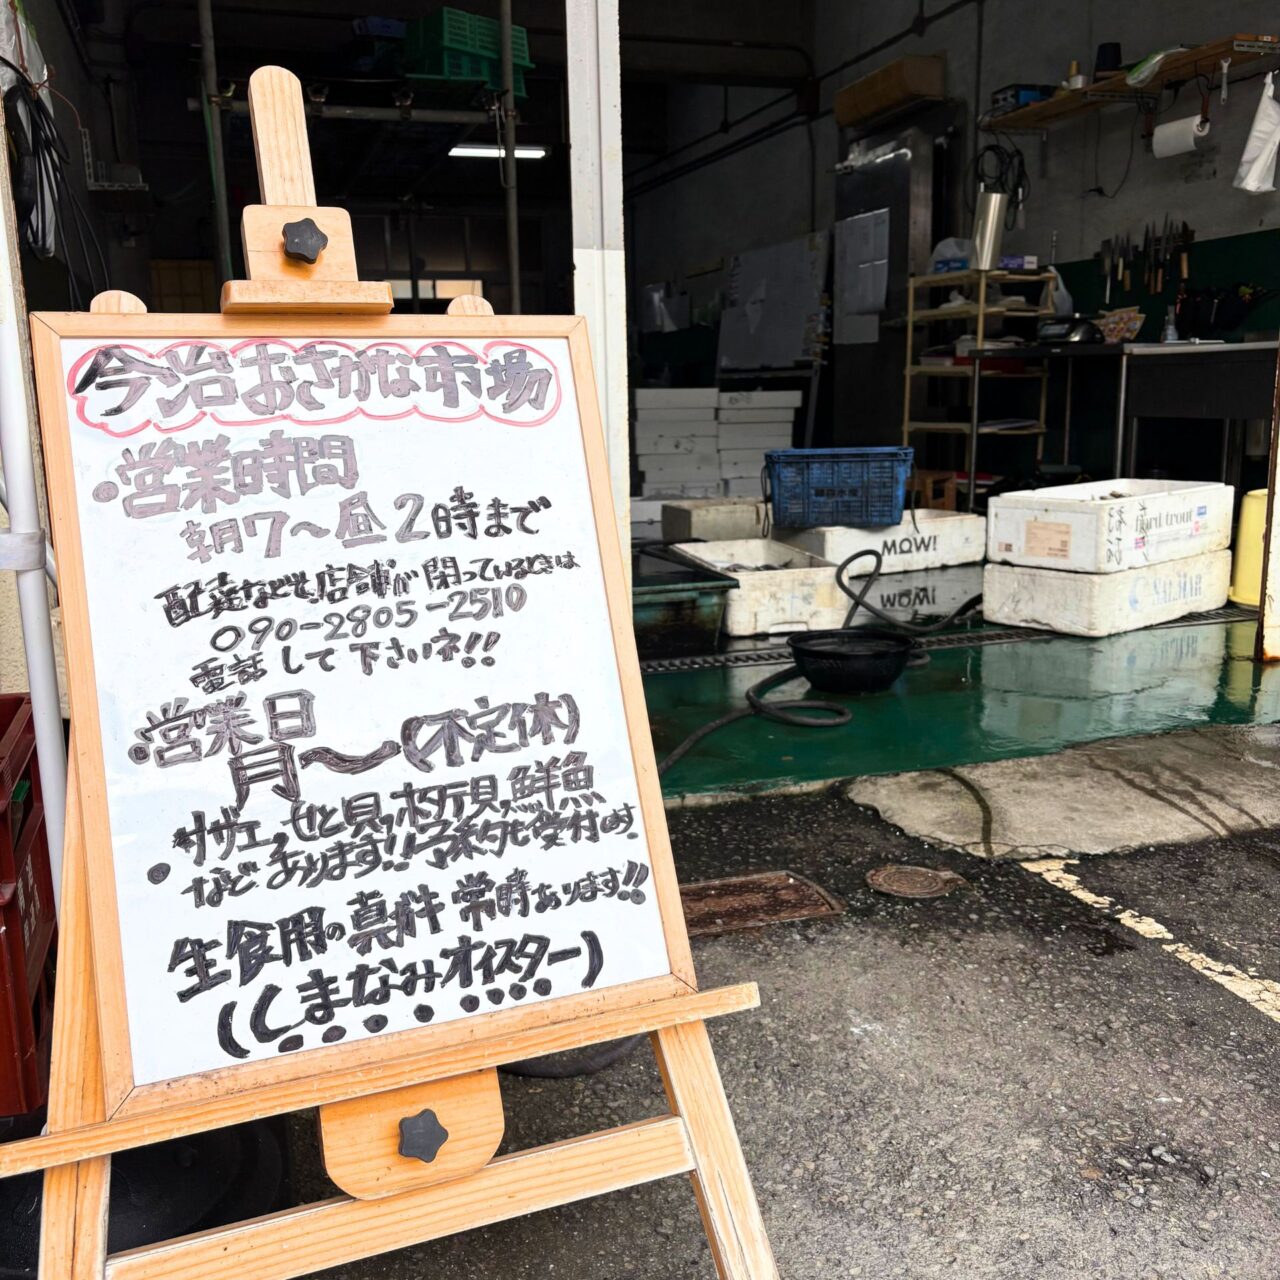 今治おさかな市場
・営業時間
朝7〜昼2時まで
配達などで、店舗が閉っているときは
090-2805-2510
電話して下さいネ!!
・営業日
月〜(不定休)
・サザエ、ひと貝、ホタテ貝、鮮魚
などあります!!予約も受付ます
生食用の真ガキ常時あります!!
(しまなみオイスター)
MOWI
trout
SALMAR